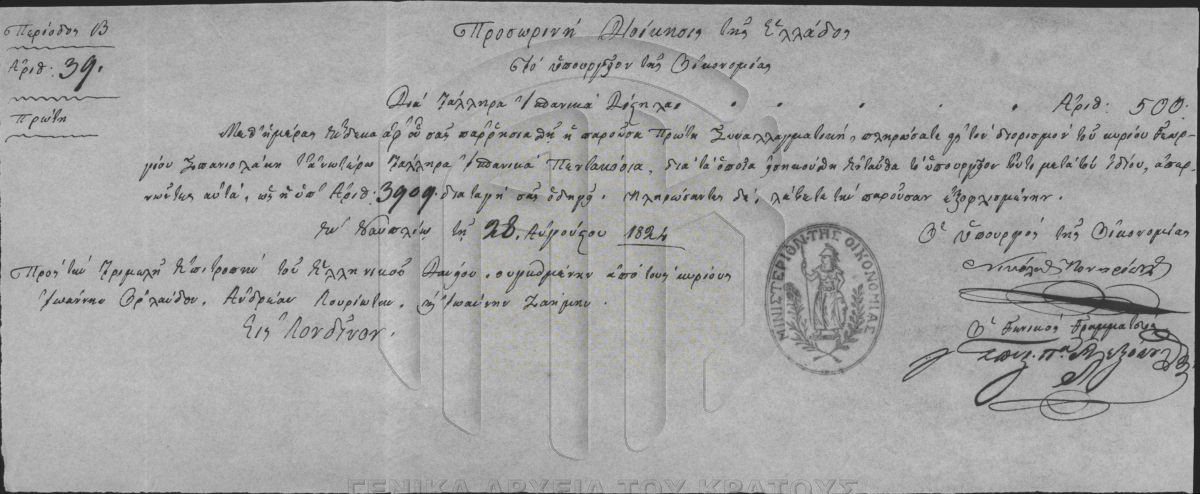 Περίοδος Β
Ἀριθ: 39.
Πρώτη
Προσωρινὴ Διοίκησις τῆς Ἑλλάδος
Τὸ ὑπουργεῖον τῆς Οἰκονομίας
Διὰ Τάλληρα Ἱσπανικὰ Δίστηλα . . . . . Ἀριθ: 500.
Μεθ' ἡμέρας ἀφ' οὗ σᾶς παῤῥησιασθῇ ἡ παροῦσα Πρώτη Συναλλαγματικὴ, πληρώσατε εἰς τὸν διορισμὸν τοῦ κυρίου Γεωρ-
γίου Σπανιολάκη τἀνωτέρω Τάλληρα Ἱσπανικὰ Πεντακόσια, διὰ τὰ ὁποῖα ἐνταῦθα τὸ ὑπουργεῖον τοῦτο μετὰ τοῦ ἰδίου,
αὐτὰ, ὡς ἡ ὑπ' Ἀριθ: 3909 διαταγή σᾶς ὁδηγεῖ. Πληρώσαντες δὲ, λάβετε τὴν παροῦσαν ἐξοφλημένην.
Ἐν Ναυπλίῳ τῇ 28. Αὐγούστου 1824
Ὁ ὑπουργὸς τῆς Οἰκονομίας
Πρὸς τὴν Τριμελῆ Ἐπιτροπὴν τοῦ Ἑλληνικοῦ Δανείου, συγκειμένην ἀπὸ τοὺς κυρίους
Ἰωάννην Ὀρλάνδον, Ἀνδρέαν Λουριώτην, καὶ Ἰωάννην Ζαήμην.
Εἰς Λονδῖνον.
Ὁ Γενικὸς Γραμματεὺς
ΜΙΝΙΣΤΕΡΙΟΝ ΤΗΣ ΟΙΚΟΝΟΜΙΑΣ
ΓΕΝΙΚΑ ΑΡΧΕΙΑ ΤΟΥ ΚΡΑΤΟΥΣ